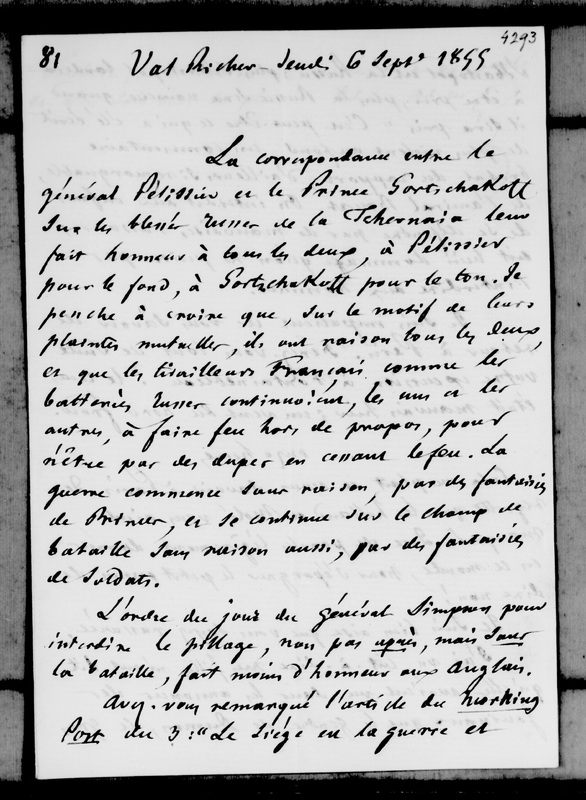 4293
81
Val Richer - Jeudi 6 Septe 1855
La correspondance entre le
général Pélissier et le Prince Gortschakoff
sur les blessés russes de la Tchernaïa leur
fait honneur à tous les deux, à Pélissier
pour le fond, à Gortschakoff pour le ton. Je
penche à croire que, sur le motif de leurs
plaintes mutuelles, ils ont raison tous les deux,
et que les tirailleurs Français comme les
batteries russes continuoient, les uns et les
autres, à faire feu hors de propos, pour
n'être pas des dupes en cessant le feu. La
guerre commence sans raison, par des fantaisies
de Princes, et se continue sur le champ de
bataille sans raison aussi, par des fantaisies
de soldats.
L'ordre du jour du général Simpson pour
interdire le pillage, non pas après, mais dans
la bataille, fait moins d'honneur aux Anglais.
Avez-vous remarqué l'article du Morning
Post du 3: "Le siège est la guerre et